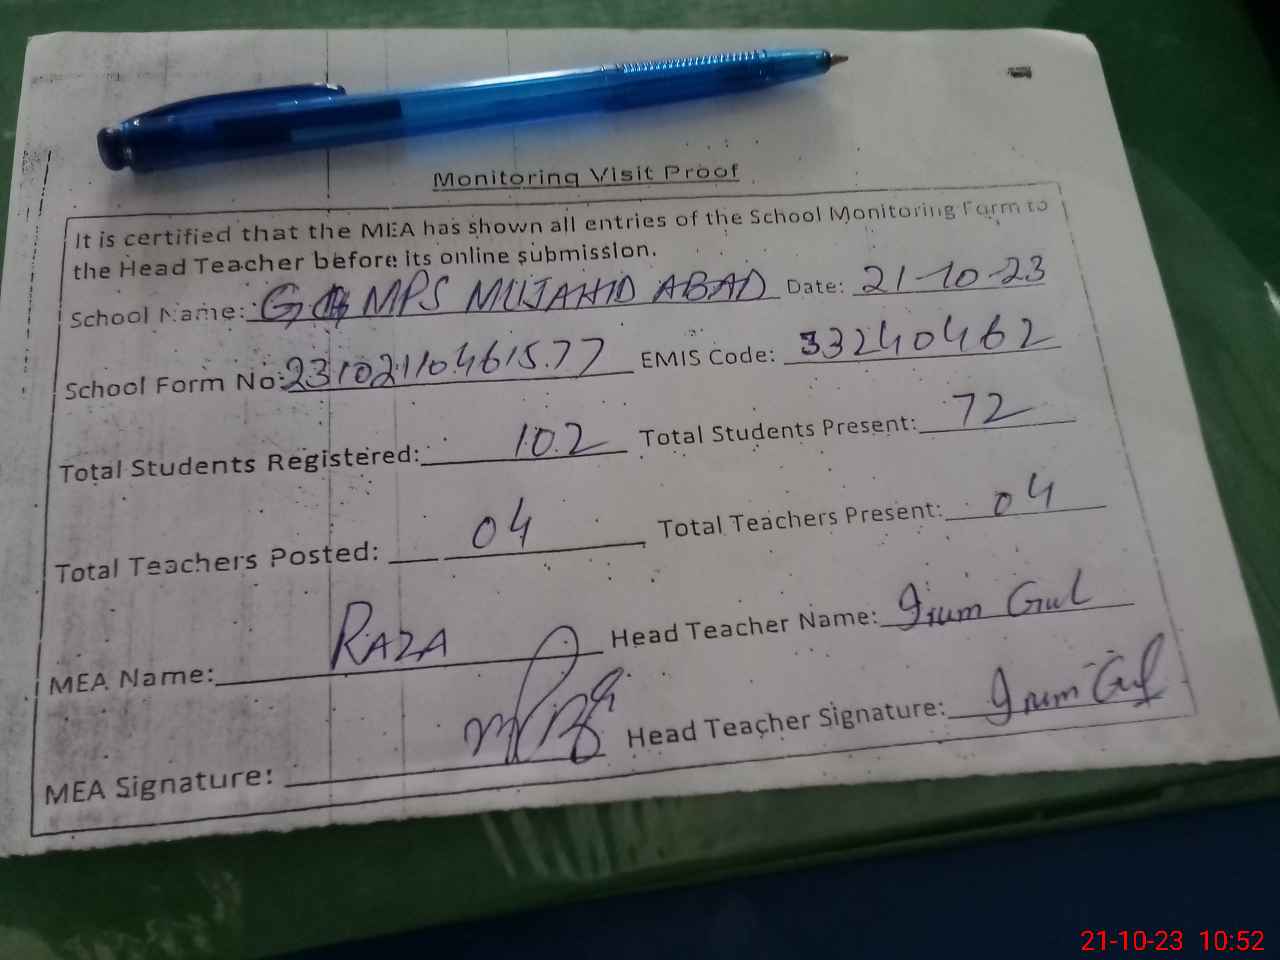 Monitoring Visit Proof
It is certified that the MEA has shown all entries of the School Monitoring Form to
the Head Teacher before its online submission.
School Name: G MPS MUJAHID ABAD Date: 21-10-23
School Form No: 23102110461577 EMIS Code: 33240462
Total Students Registered: 102 Total Students Present: 72
Total Teachers Posted: 04 Total Teachers Present: 04
MEA Name: RAZA Head Teacher Name: Irum Gul
MEA Signature: Head Teacher Signature: Irum Gul
21-10-23 10:52